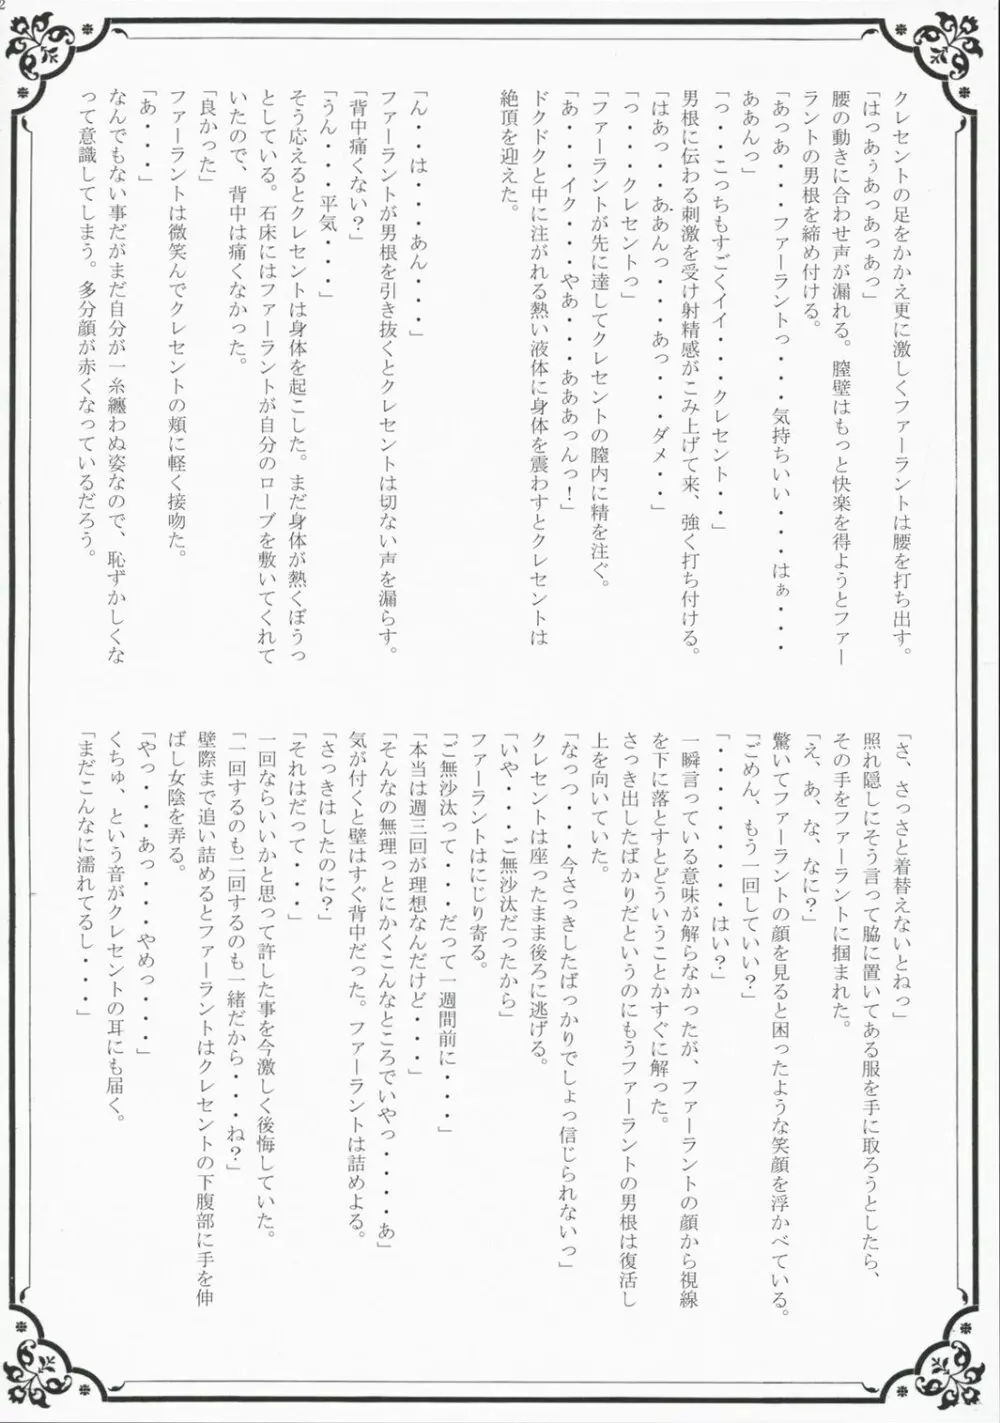 2
クレセントの足をかかえ更に激しくファーラントは腰を打ち出す。
「はっあぅあっあっあっ」
腰の動きに合わせ声が漏れる。膣壁はもっと快楽を得ようとファー
ラントの男根を締め付ける。
「あっあ・・・ファーラントっ・・・気持ちいい・・・はぁ・・・
ああんっ」
「っ・・・こっちもすごくイイ・・・クレセント・・」
男根に伝わる刺激を受け射精感がこみ上げて来、強く打ち付ける。
「はあっ・・ああんっ・・・あっ・・・ダメ・・」
「っ・・・クレセントっ」
「ファーラントが先に達してクレセントの膣内に精を注ぐ。
「あ・・・イク・・・やあ・・・あああっんっ！」
ドクドクと中に注がれる熱い液体に身体を震わすとクレセントは
絶頂を迎えた。
「ん・・は・・・あん・・・」
ファーラントが男根を引き抜くとクレセントは切ない声を漏らす。
「背中痛くない？」
「うん・・・平気・・・」
そう応えるとクレセントは身体を起こした。まだ身体が熱くぼうっ
としている。石床にはファーラントが自分のローブを敷いてくれて
いたので、背中は痛くなかった。
「良かった」
ファーラントは微笑んでクレセントの頬に軽く接吻た。
「あ・・・」
なんでもない事だがまだ自分が一糸纏わぬ姿なので、恥ずかしくな
って意識してしまう。多分顔が赤くなっているだろう。
「さ、さっさと着替えないとねっ」
照れ隠しにそう言って脇に置いてある服を手に取ろうとしたら、
その手をファーラントに掴まれた。
「え、あ、な、なに？」
驚いてファーラントの顔を見ると困ったような笑顔を浮かべている。
「ごめん、もう一回していい？」
「・・・・・・・はい？」
一瞬言っている意味が解らなかったが、ファーラントの顔から視線
を下に落とすとどういうことかすぐに解った。
さっき出したばかりだというのにもうファーラントの男根は復活し
上を向いていた。
「なっっ・・・今さっきしたばっかりでしょっ信じられないっ」
クレセントは座ったまま後ろに逃げる。
「いや・・・ご無沙汰だったから」
ファーラントはにじり寄る。
「ご無沙汰って・・・だって一週間前に・・・」
「本当は週三回が理想なんだけど・・・」
「そんなの無理っとにかくこんなところでいやっ・・・あ」
気が付くと壁はすぐ背中だった。ファーラントは詰めよる。
「さっきはしたのに？」
「それはだって・・・」
一回ならいいかと思って許した事を今激しく後悔していた。
「一回するのも二回するのも一緒だから・・・ね？」
壁際まで追い詰めるとファーラントはクレセントの下腹部に手を伸
ばし女陰を弄る。
「やっ・・・あっ・・・やめっ・・・」
くちゅ、という音がクレセントの耳にも届く。
「まだこんなに濡れてるし・・・」